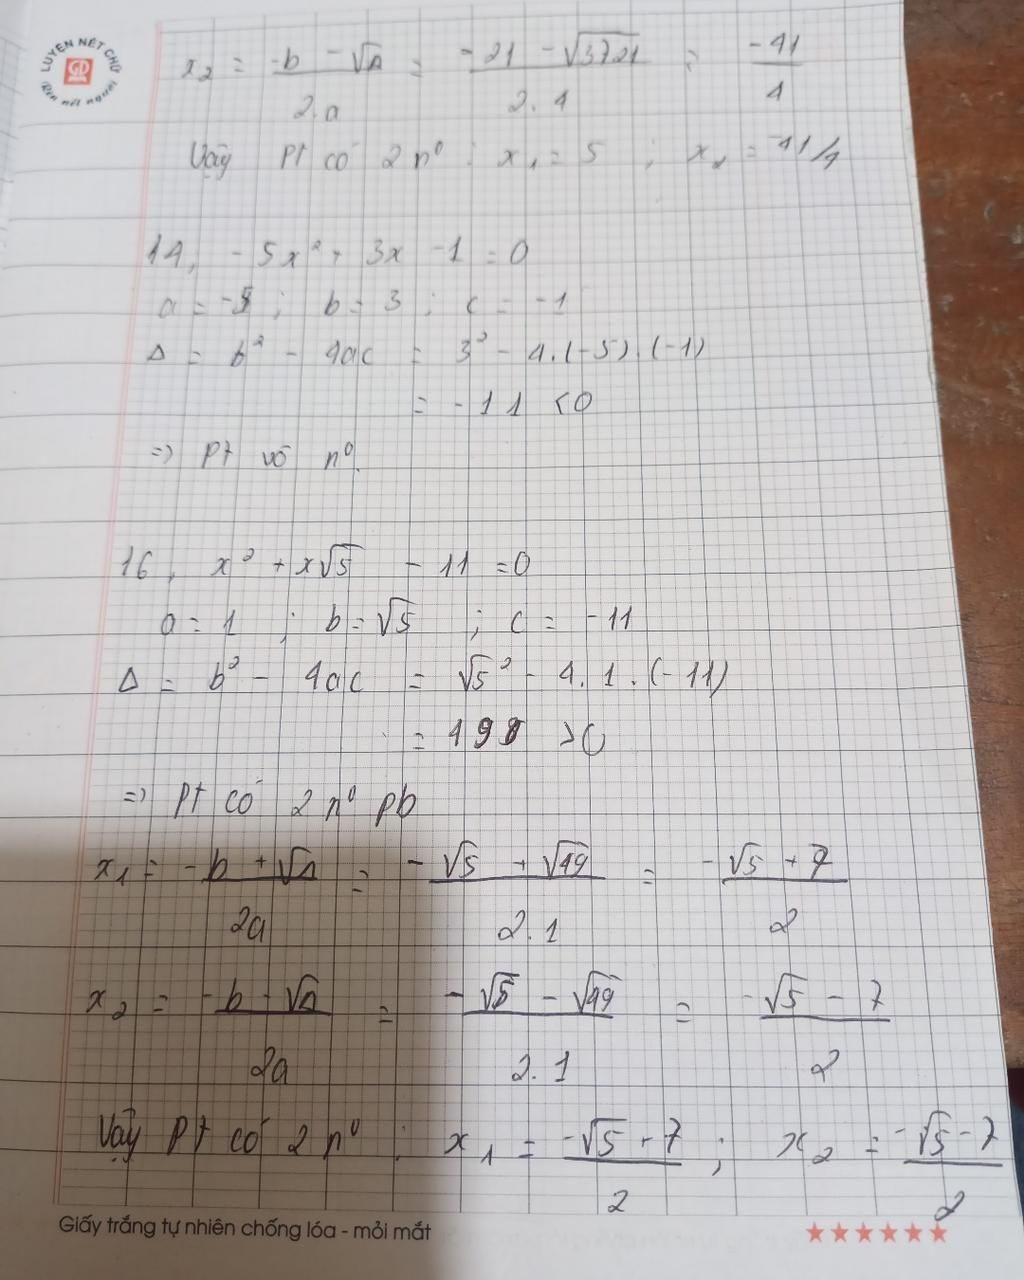 LUYỆN NÉT CHỮ
GD
Rèn nết người
x₂ = (-b - √Δ)/(2.a) = (-21 - √3721)/(2.4) = -41/4
Vậy Pt có 2 n⁰ : x₁ = 5 ; x₂ = -41/4
14, -5x² + 3x - 1 = 0
a = -5 ; b = 3 ; c = -1
Δ = b² - 4ac = 3² - 4.(-5).(-1)
= -11 < 0
=> Pt vô n⁰.
16, x² + x√5 - 11 = 0
a = 1 ; b = √5 ; c = -11
Δ = b² - 4ac = √5² - 4.1.(-11)
= 49 > 0
=> Pt có 2 n⁰ pb
x₁ = (-b + √Δ)/(2a) = (-√5 + √49)/(2.1) = (-√5 + 7)/2
x₂ = (-b - √Δ)/(2a) = (-√5 - √49)/(2.1) = (-√5 - 7)/2
Vậy Pt có 2 n⁰ : x₁ = (-√5 + 7)/2 ; x₂ = (-√5 - 7)/2
Giấy trắng tự nhiên chống lóa - mỏi mắt